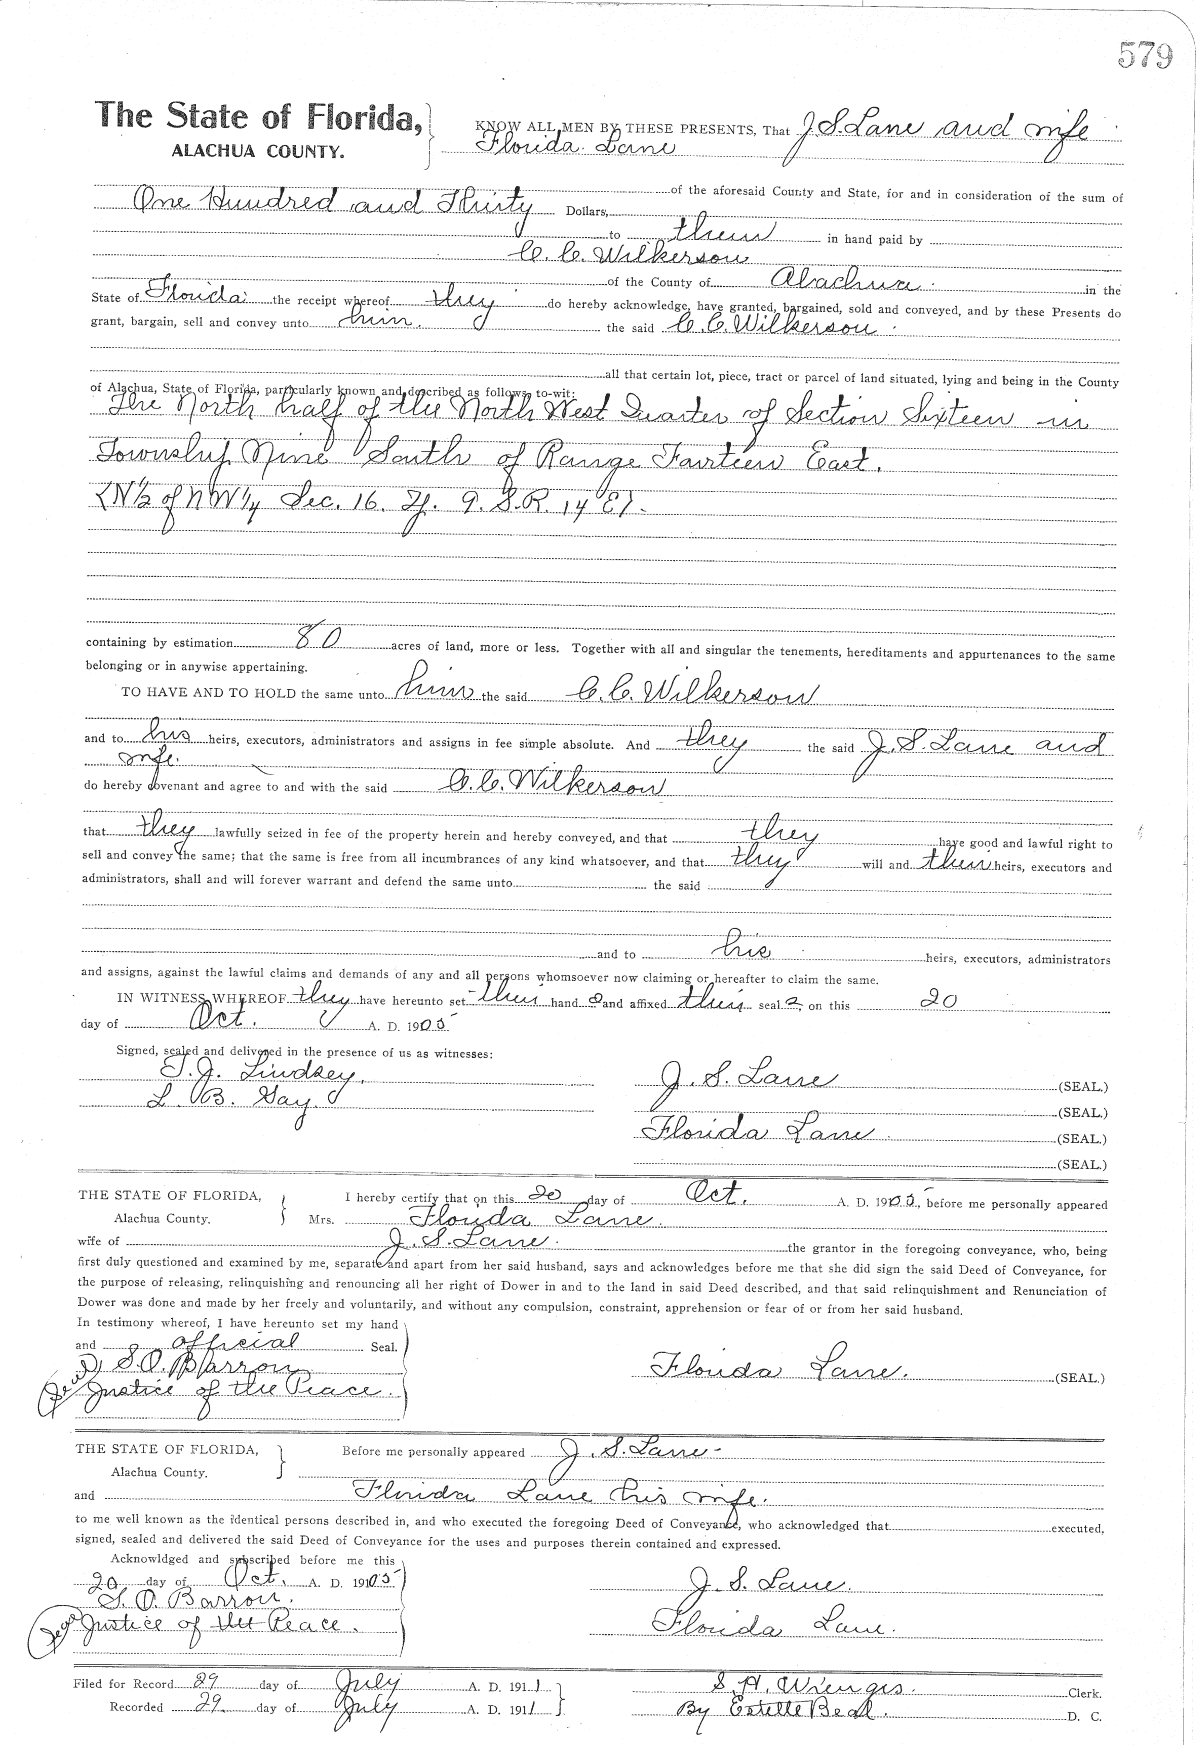 579
The State of Florida,
ALACHUA COUNTY.
KNOW ALL MEN BY THESE PRESENTS, That J. S. Lane and wife
Florida Lane
of the aforesaid County and State, for and in consideration of the sum of
One Hundred and Thirty Dollars,
to them in hand paid by
C. C. Wilkerson
of the County of Alachua in the
State of Florida the receipt whereof they do hereby acknowledge, have granted, bargained, sold and conveyed, and by these Presents do
grant, bargain, sell and convey unto him the said C. C. Wilkerson
all that certain lot, piece, tract or parcel of land situated, lying and being in the County
of Alachua, State of Florida, particularly known and described as follows, to-wit:
The North half of the North West Quarter of Section Sixteen in
Township Nine South of Range Fourteen East.
(N½ of NW¼ Sec. 16. Tp. 9. S. R. 14 E).
containing by estimation 80 acres of land, more or less. Together with all and singular the tenements, hereditaments and appurtenances to the same
belonging or in anywise appertaining.
TO HAVE AND TO HOLD the same unto him the said C. C. Wilkerson
and to his heirs, executors, administrators and assigns in fee simple absolute. And they the said J. S. Lane and
wife.
do hereby covenant and agree to and with the said C. C. Wilkerson
that they lawfully seized in fee of the property herein and hereby conveyed, and that they have good and lawful right to
sell and convey the same; that the same is free from all incumbrances of any kind whatsoever, and that they will and their heirs, executors and
administrators, shall and will forever warrant and defend the same unto the said
and to his heirs, executors, administrators
and assigns, against the lawful claims and demands of any and all persons whomsoever now claiming or hereafter to claim the same.
IN WITNESS WHEREOF they have hereunto set their hand s and affixed their seal s, on this 20
day of Oct. A. D. 1905
Signed, sealed and delivered in the presence of us as witnesses:
T. J. Lindsey.
L. B. Gay.
J. S. Lane (SEAL.)
(SEAL.)
Florida Lane (SEAL.)
(SEAL.)
THE STATE OF FLORIDA,
Alachua County.
I hereby certify that on this 20 day of Oct. A. D. 1905, before me personally appeared
Mrs. Florida Lane.
wife of J. S. Lane. the grantor in the foregoing conveyance, who, being
first duly questioned and examined by me, separate and apart from her said husband, says and acknowledges before me that she did sign the said Deed of Conveyance, for
the purpose of releasing, relinquishing and renouncing all her right of Dower in and to the land in said Deed described, and that said relinquishment and Renunciation of
Dower was done and made by her freely and voluntarily, and without any compulsion, constraint, apprehension or fear of or from her said husband.
In testimony whereof, I have hereunto set my hand
and official Seal.
S. O. Barron
Justice of the Peace.
Florida Lane. (SEAL.)
THE STATE OF FLORIDA,
Alachua County.
Before me personally appeared J. S. Lane
and Florida Lane his wife.
to me well known as the identical persons described in, and who executed the foregoing Deed of Conveyance, who acknowledged that executed,
signed, sealed and delivered the said Deed of Conveyance for the uses and purposes therein contained and expressed.
Acknowldged and subscribed before me this
20 day of Oct. A. D. 1905
S. O. Barron.
Seal Justice of the Peace.
J. S. Lane.
Florida Lane.
Filed for Record 29 day of July A. D. 1911
Recorded 29. day of July A. D. 1911
S. H. Wienges. Clerk.
By Estelle Beal. D. C.